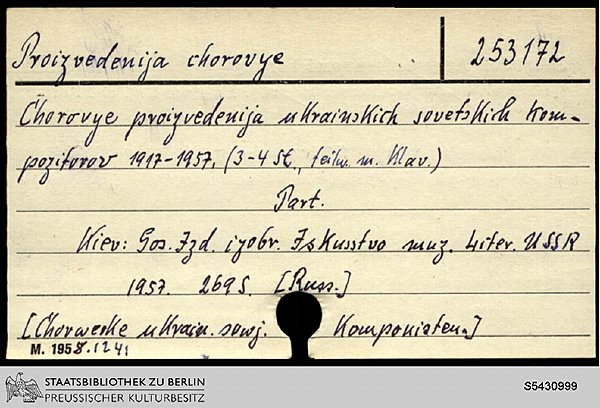 Proizvedenija chorovye 253172
Chorovye proizvedenija ukrainskich sovetskich kom-
pozitorov 1917-1957. (3-4 St., teilw. m. Klav.)
Part.
Kiev: Gos. Izd. izobr. Iskusstvo muz. Liter. USSR
1957. 269 S. [Russ.]
[Chorwerke ukrain. sowj. Komponisten.]
M. 1958.1241
STAATSBIBLIOTHEK ZU BERLIN
PREUSSISCHER KULTURBESITZ
S5430999